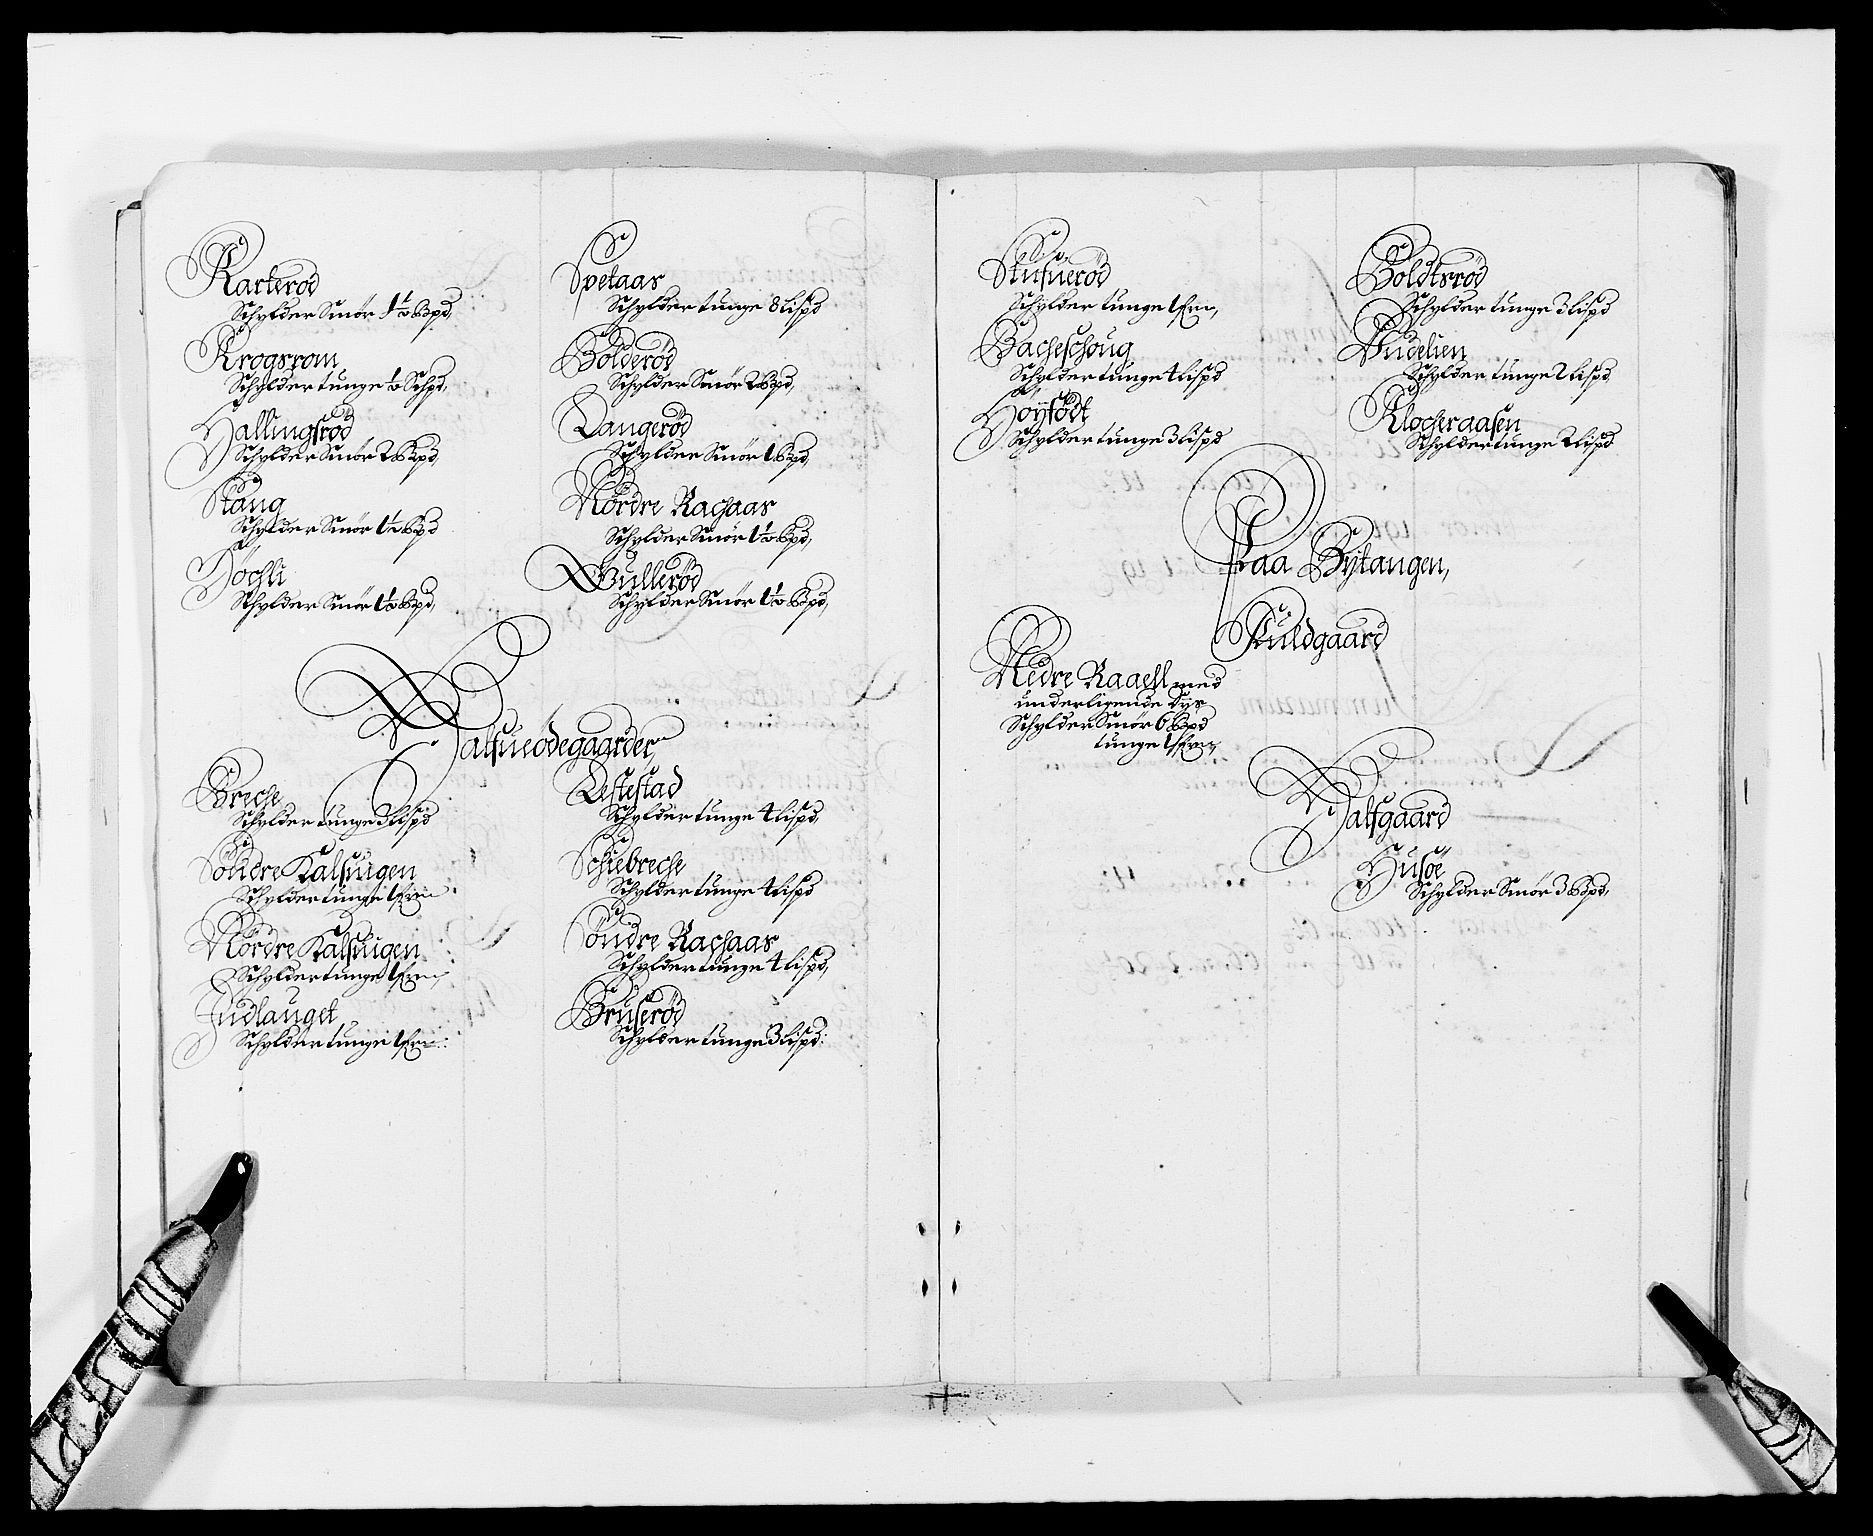 Karterød
Schylder Smör 1½ Bpd,
Krogsrom
Schylder tunge ½ Schpd,
Hallingsrød
Schylder Smör 2 Bpd,
Stang
Schylder Smör 1½ Bpd
Höchli
Schylder Smör 1½ Bpd,
Spetaas
Schylder tunge 8 lispd
Bolderöd
Schylder Smör 2 Bpd,
Langeröd
Schylder Smör 1 Bpd,
Nordre Rachaas
Schylder Smör 1½ Bpd,
Wulleröd
Schylder Smör 1½ Bpd,
Halfueödegaarder,
Breche
Schylder tunge 3 lispd
Söndre Kalfuigen
Schylder tunge 1 frn
Nordre Kalfuigen
Schylder tunge 1 frn,
Indlauget
Schylder tunge 1 frn:
Lestestad
Schylder tunge 4 lispd,
Schiebreche
Schylder tunge 4 lispd
Söndre Rachaas
Schylder tunge 4 lispd,
Bruseröd
Schylder tunge 3 lispd:
Stufueröd
Schylder tunge 1 frn,
Bacheschoug
Schylder tunge 4 lispd
Höyfödt
Schylder tunge 3 lispd
Boldtsröd
Schylder tunge 3 lispd
Wudelien
Schylder tunge 2 lispd
Klocheraasen
Schylder tunge 2 lispd
Paa Bytangen,
Fuldgaard
Nedre Raaell med
underligende
Schylder Smör 6 Bpd
tunge 1 frn,
Halfgaard
Husöe
Schylder Smör 3 Bpd,